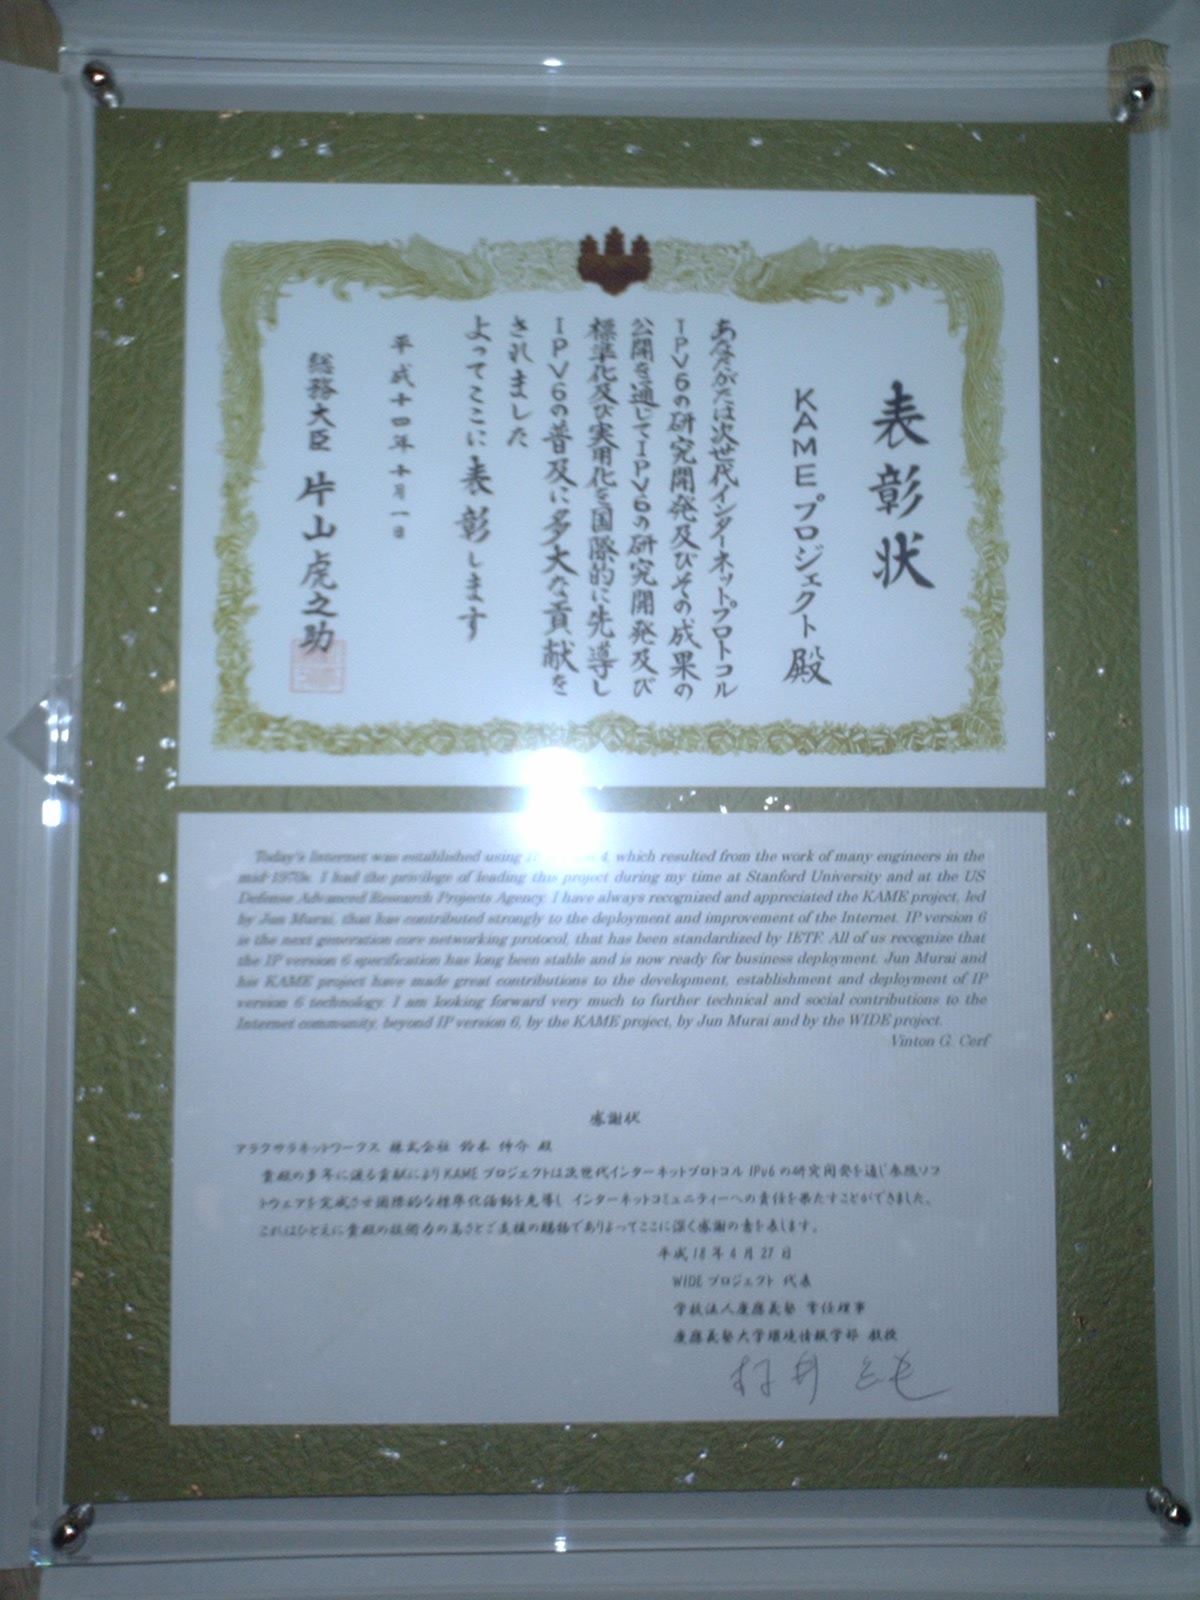 表彰状
KAMEプロジェクト殿
あなたがたは次世代インターネットプロトコル
IPV6の研究開発及びその成果の
公開を通じてIPV6の研究開発及び
標準化及び実用化を国際的に先導し
IPV6の普及に多大な貢献を
されました
よってここに表彰します
平成十四年十月一日
総務大臣 片山虎之助
Today's Internet was established using 4, which resulted from the work of many engineers in the
mid-1970s. I had the privilege of leading this project during my time at Stanford University and at the US
Defense Advanced Research Projects Agency. I have always recognized and appreciated the KAME project, led
by Jun Murai, that has contributed strongly to the deployment and improvement of the Internet. IP version 6
is the next generation core networking protocol, that has been standardized by IETF. All of us recognize that
the IP version 6 specification has long been stable and is now ready for business deployment. Jun Murai and
his KAME project have made great contributions to the development, establishment and deployment of IP
version 6 technology. I am looking forward very much to further technical and social contributions to the
Internet community, beyond IP version 6, by the KAME project, by Jun Murai and by the WIDE project.
Vinton G. Cerf
感謝状
アラクサラネットワークス 株式会社 鈴木 伸介 殿
貴殿の多年に渡る貢献によりKAMEプロジェクトは次世代インターネットプロトコル IPv6 の研究開発を通じ参照ソフ
トウェアを完成させ国際的な標準化活動を先導し インターネットコミュニティーへの責任を果たすことができました。
これはひとえに貴殿の技術力の高さとご支援の賜物でありよってここに深く感謝の意を表します。
平成 18 年 4 月 27 日
WIDE プロジェクト 代表
学校法人慶應義塾 常任理事
慶應義塾大学環境情報学部 教授
村井 純